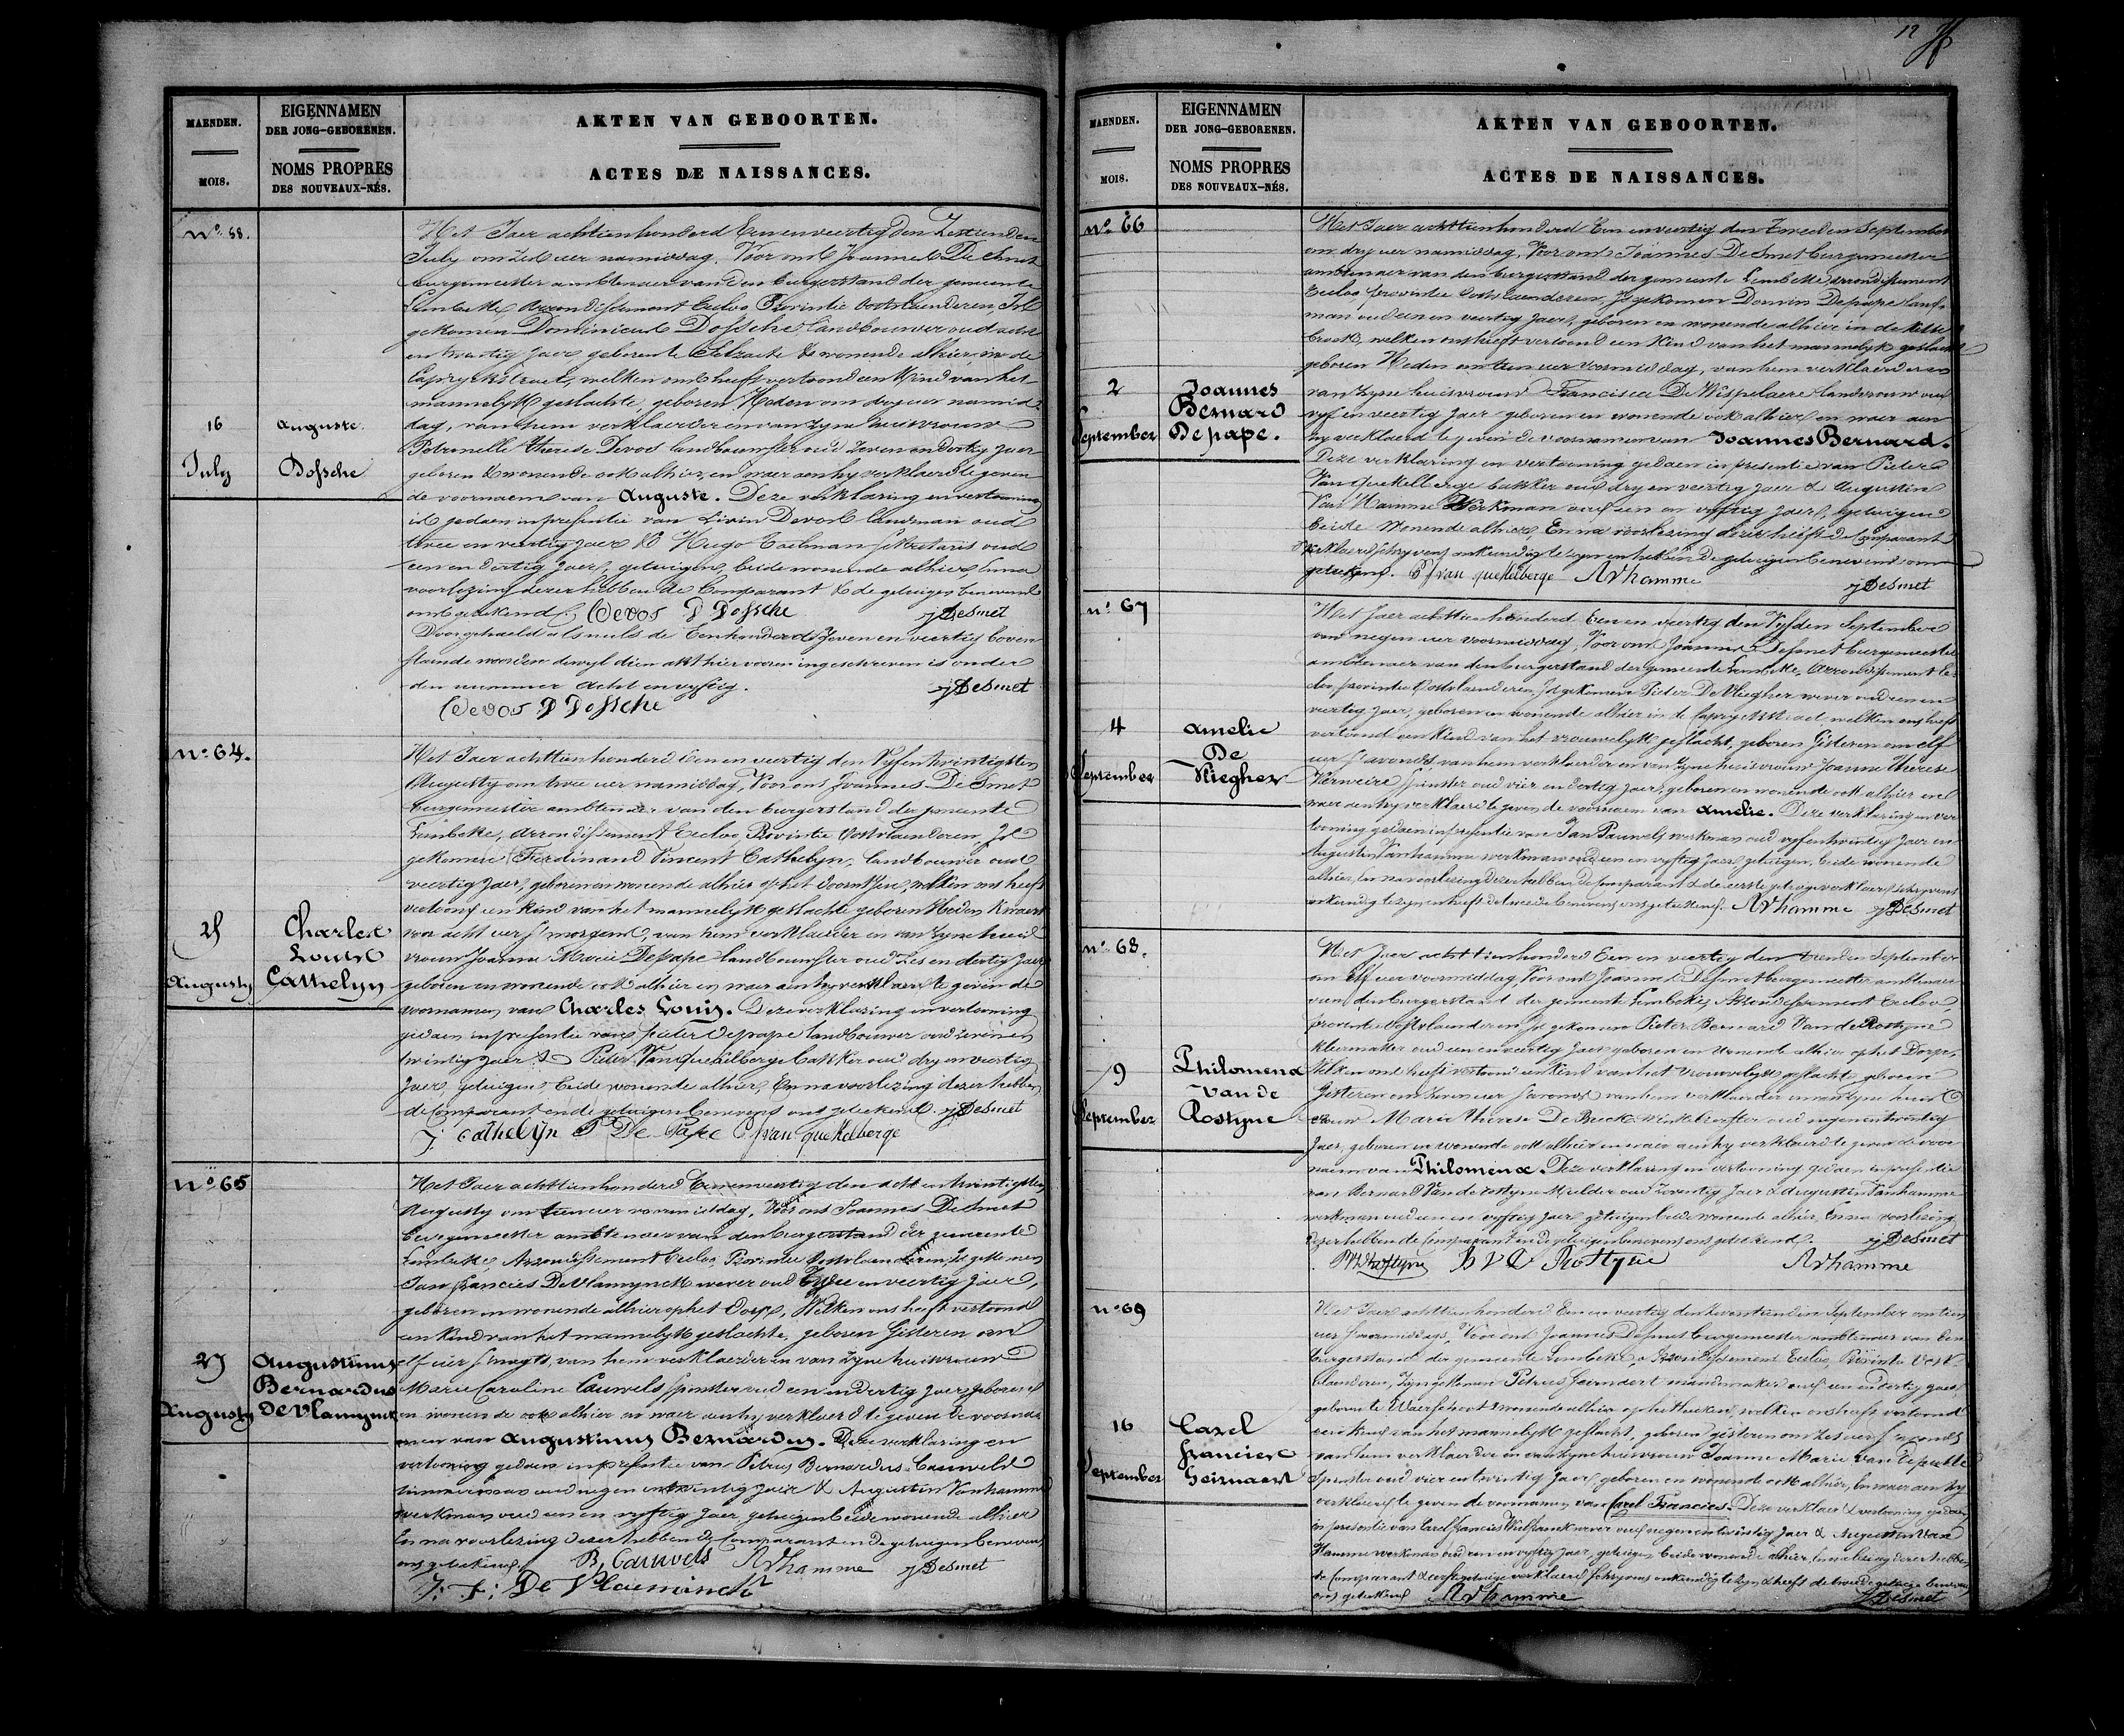 MAENDEN.
MOIS.
EIGENNAMEN
DER JONG-GEBORENEN.
NOMS PROPRES
DES NOUVEAUX-NÉS.
AKTEN VAN GEBOORTEN.
ACTES DE NAISSANCES.
No. 58.
16
July
Auguste
Dossche
Het Jaer achtienhonderd Een en veertig den Zestienden
July om Zes uer namiddag. Voor ons Joannes De Smet
burgemeester ambtenaer van den burgerstand der gemeente
Lembeke, Arrondissement Eecloo Provintie Oostvlaenderen, Is
gekomen Dominicus Dossche landbouwer oud acht
en twintig Jaer geboren te Selzaete & wonende alhier in de
Caprykstraet, welken ons heeft vertoond een Kind van het
mannelyk geslachte, geboren Heden om dry uer namid-
dag, van hem verklaerder en van zyne huisvrouw
Petronelle Therese Devos landbouwster oud Zeven en dertig Jaer
geboren & wonende ook alhier, en waer aen hy verklaerd te geven
de voornaem van Auguste. Deze verklaring en vertooning
is gedaen in presentie van Livin Devos landman oud
twee en veertig Jaer & Hugo Taelman sekretaris oud
een en dertig Jaer, getuigen, beide wonende alhier, Enna
voorlezing dezer hebben de Comparant & de getuigen benevens
ons geteekend. L Devos D Dossche JDeSmet
Doorgehaeld als nul de Eenhonderd Zeven en veertig boven
staende woorden dewyl dien akt hier vooren ingeschreven is onder
den nummer acht en vyftig. JDeSmet
L Devos D Dossche
No. 64.
25
Augusty
Charles
Louis
Cathelyn
Het Jaer achttienhonderd Een en veertig den Vyfentwintigsten
Augusty om twee uer namiddag, Voor ons Joannes De Smet
burgemeester ambtenaer van den burgerstand der gemeente
Lembeke, Arrondissement Eecloo Provintie Oostvlaenderen, Is
gekomen Ferdinand Vincent Cathelyn, landbouwer oud
veertig Jaer, geboren en wonende alhier op het , welken ons heeft
vertoond een kind van het mannelyk geslachte geboren Heden Kwaert
voor acht uer s'morgens, van hem verklaerder en van zyne huis
vrouw Joanna Marie Depape landbouwster oud Zes en dertig Jaer
geboren en wonende ook alhier en waer aen hy verklaerd te geven de
voornamen van Charles Louis. Deze verklaring en vertooning
gedaen in presentie van Pieter Depape landbouwer oud Zeven en
twintig Jaer & Pieter Vanquekelberge bakker oud dry en veertig
Jaer, getuigen beide wonende alhier, En na voorlezing dezer hebben
de Comparant en de getuigen benevens ons geteekend. JDeSmet
F: Cathelyn P De Pape P van quekelberge
No 65
27
Augusty
Augustinus
Bernardus
DeVlamynck
Het Jaer achttienhonderd Een en veertig den acht en twintigsten
Augusty om tien uer voormiddag, Voor ons Joannes DeSmet
Burgemeester ambtenaer van den burgerstand der gemeente
Lembeke, Arrondissement Eecloo, Provintie Oostvlaenderen, Is gekomen
Jan Francies DeVlamynck wever oud Twee en veertig Jaer,
geboren en wonende alhier op het Dorp, Welken ons heeft vertoond
een Kind van het mannelyk geslachte, geboren Gisteren om
elf uer s'nagts, van hem verklaerder en van zyne huisvrouw
Marie Caroline Cauwels spinster oud een en dertig Jaer geboren
en wonende ook alhier en waer aen hy verklaerd te geven de voorna-
men van Augustinus Bernardus. Deze verklaring en
vertooning gedaen in presentie van Petrus Bernardus Cauwels
timmerman oud negen en twintig Jaer & Augustin Vanhamme
werkman oud een en vyftig Jaer, getuigen beide wonende alhier
En na voorlezing dezer hebben de Comparant en de getuigen benevens
ons geteekend. B, Cauwels AVhamme JDeSmet
J: f: De Vlaeminck
12
MAENDEN.
MOIS.
EIGENNAMEN
DER JONG-GEBORENEN.
NOMS PROPRES
DES NOUVEAUX-NÉS.
AKTEN VAN GEBOORTEN.
ACTES DE NAISSANCES.
No. 66
2
September
Joannes
Bernard
Depape.
Het Jaer achttienhonderd Een en veertig den Tweeden September
om dry uer namiddag, Voor ons Joannes De Smet burgemeester
ambtenaer van den burgerstand der gemeente Lembeke arrondissement
Eecloo provintie Oostvlaenderen, Is gekomen Depape land-
man oud een en veertig Jaer, geboren en wonende alhier in de
broek, welken ons heeft vertoond een Kind van het mannelyk geslacht
geboren Heden om tien uer voormiddag, van hem verklaerder en
van zyne huisvrouw Francisca De Wispelaere landvrouw oud
vyf en veertig Jaer geboren en wonende ook alhier en waer aen
hy verklaerd te geven de voornamen van Joannes Bernard.
Deze verklaring en vertooning gedaen in presentie van Pieter
Van Quekelberge bakker oud dry en veertig Jaer & Augustin
Van Hamme Werkman oud een en vyftig Jaer, getuigen
beide Wonende alhier, En na voorlezing dezer heeft de Comparant
verklaerd schryvens onkundig te zyn en hebben de getuigen benevens ons
geteekend. P van quekelberge AVhamme JDeSmet
No. 67
4
September
Amelie
De
Vliegher
Het Jaer achttienhonderd Een en veertig den Vyfden September
om negen uer voormiddag, Voor ons Joannes DeSmet burgemeester
ambtenaer van den burgerstand der gemeente Lembeke, Arrondissement Ee-
cloo provintie Oostvlaenderen, Is gekomen Pieter DeVliegher wever oud een en
veertig Jaer, geboren en wonende alhier in de Caprykstraet welken ons heeft
vertoond een Kind van het vrouwelyk geslacht, geboren Gisteren om elf
uer s'avonds van hem verklaerder en van zyne huisvrouw Joanna Therese
Verweire spinster oud vier en dertig Jaer, geboren en wonende ook alhier en
waer aen hy verklaerd te geven de voornaem van Amelie. Deze verklaring en ver
tooning gedaen in presentie van Jan Pauwels werkman oud vyfentwintig Jaer en
Augustin Vanhamme werkman oud een en vyftig Jaer getuigen, beide wonende
alhier, en na voorlezing dezer hebben de Comparant & de eerste getuige verklaerd schryvens
onkundig te zyn en heeft de tweede benevens ons geteekend. AVhamme JDeSmet
No. 68.
9
September
Philomena
Van de
Rostyne
Het Jaer achttienhonderd Een en veertig den tienden September
om elf uer voormiddag, Voor ons Joannes DeSmet burgemeester ambtenaer
van den burgerstand der gemeente Lembeke, Arrondissement Eecloo,
provintie Oostvlaenderen, Is gekomen Pieter Bernard Van de Rostyne
kleermaker oud een en veertig Jaer geboren en wonende alhier op het Dorp,
Welken ons heeft vertoond een Kind van het vrouwelyk geslachte geboren
Gisteren om Zeven uer s'avonds van hem verklaerder en van zyne huis
vrouw Marie Therese De Buck winkelierster oud negenentwintig
Jaer, geboren en wonende ook alhier en waer aen hy verklaerd te geven de voor
naem van Philomena. Deze verklaring en vertooning gedaen in presentie
van Bernard Van de rostyne Mulder oud Zeventig Jaer & Augustin Vanhamme
werkman oud een en vyftig Jaer getuigen beide wonende alhier, En na voorlezing
dezer hebben de Comparant en de getuigen benevens ons geteekend. JDeSmet
B V D Rostyne AVhamme
No 69
16
September
Carel
Francies
Geirnaert
Het Jaer achttienhonderd Een en veertig den Zeventienden September om tien
uer s'voormiddags, Voor ons Joannes DeSmet burgemeester ambtenaer van den
burgerstand der gemeente Lembeke, Arrondissement Eecloo, Provintie Oost-
vlaenderen, Is gekomen Petrus mandmaker oud een en dertig Jaer
geboren te Waerschoot & wonende alhier op het , welken ons heeft vertoond
een Kind van het mannelyk geslacht, geboren gisteren om Zes uer s'avonds
van hem verklaerder en van zyne huisvrouw Joanna Marie Van
Spinster oud vier en twintig Jaer, geboren en wonende ook alhier, En waer aen hy
verklaerd te geven de voornamen van Carel Francies. Deze verklaer & vertooning gedaen
in presentie van Carel Francies wever oud negen en twintig Jaer & Augustin Van
Hamme werkman oud een en vyftig Jaer, getuigen, beide wonende alhier, En na lezing dezer hebben
de Comparant & eerste getuige verklaerd schryvens onkundig te zyn & heeft de tweede getuige benevens
ons geteekend AVhamme JDeSmet